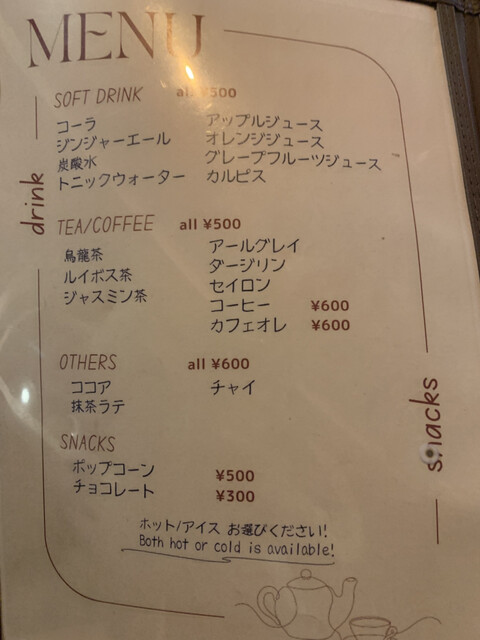 MENU
drink
SOFT DRINK all ¥500
コーラ アップルジュース
ジンジャーエール オレンジジュース
炭酸水 グレープフルーツジュース
トニックウォーター カルピス
TEA/COFFEE all ¥500
烏龍茶 アールグレイ
ルイボス茶 ダージリン
ジャスミン茶 セイロン
コーヒー ¥600
カフェオレ ¥600
OTHERS all ¥600
ココア チャイ
抹茶ラテ
snacks
SNACKS
ポップコーン ¥500
チョコレート ¥300
ホット/アイス お選びください!
Both hot or cold is available!